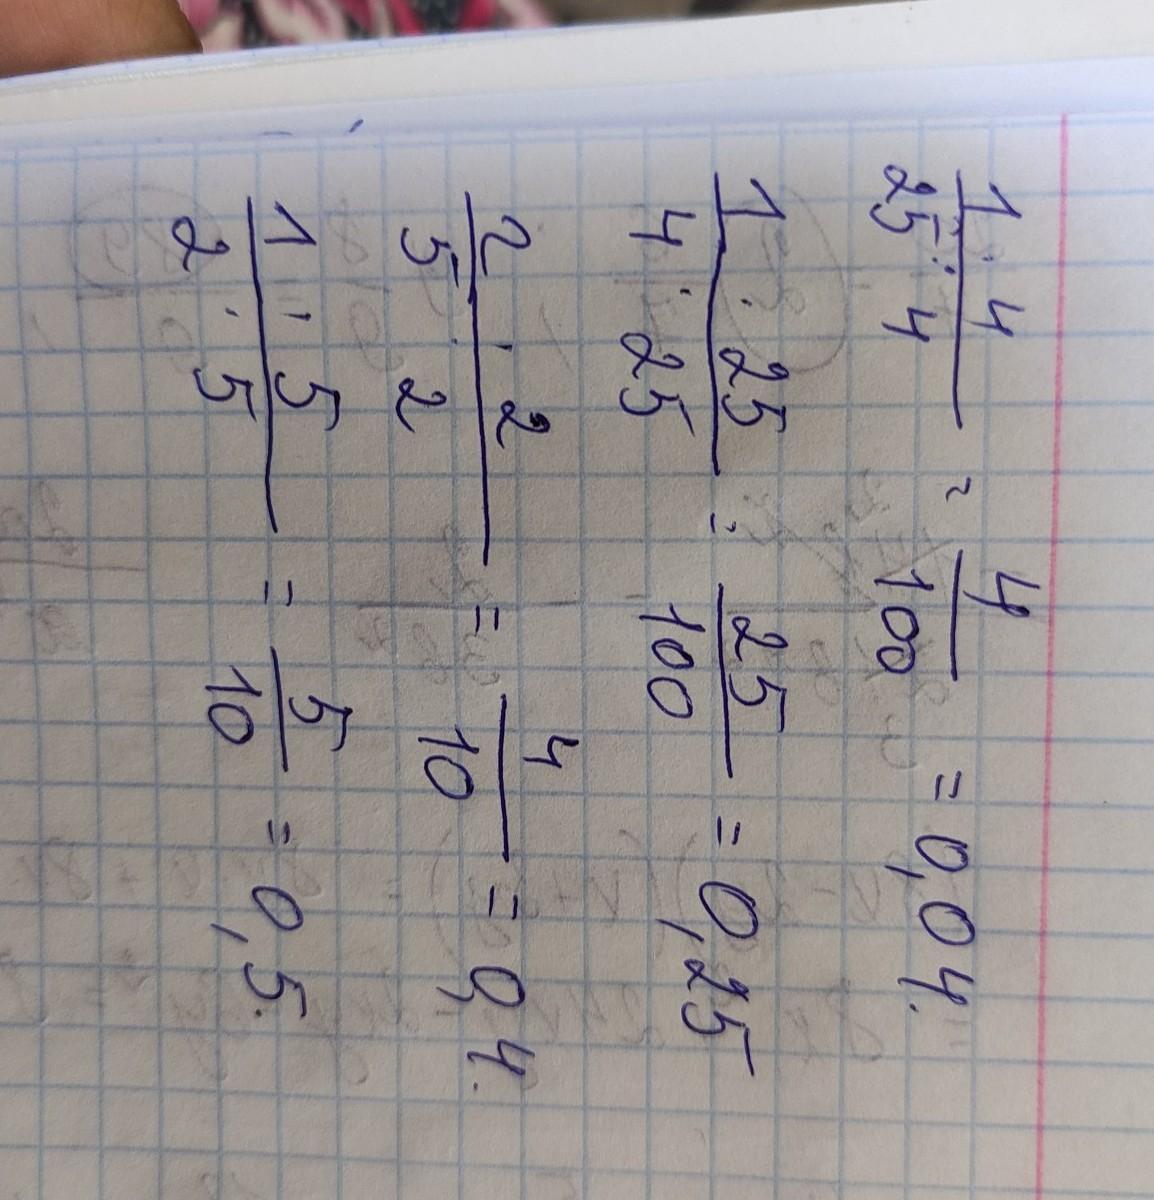 1 · 4 / 25 · 4 = 4 / 100 = 0,04.
1 · 25 / 4 · 25 = 25 / 100 = 0,25
2 · 2 / 5 · 2 = 4 / 10 = 0,4.
1 · 5 / 2 · 5 = 5 / 10 = 0,5.